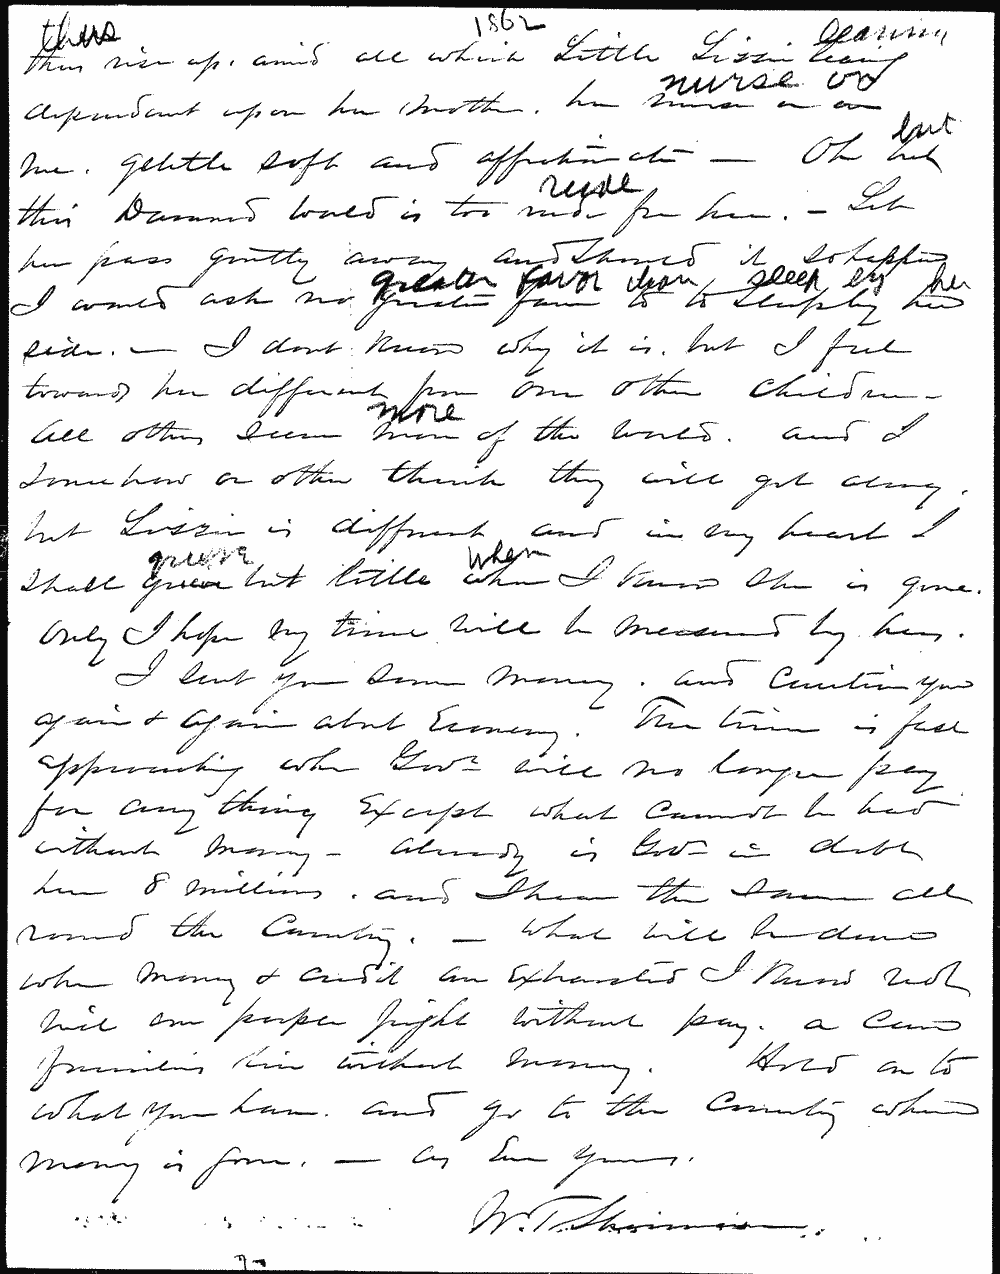 thus 1862 leaning
thus rise up. amid all which Little Lizzie leaning
nurse or
dependant upon her Mother. her nurse or on
but
me. gentle soft and affectionate — Oh but
rude
this Damned world is too rude for her. — Let
her pass gently away and should it so happen
greater favor than sleep by her
I would ask no greater favor to sleep by her
side. — I dont know why it is. but I feel
towards her different from our other children —
more
all others seem more of the world. and I
somehow or other think they will get along.
but Lizzie is different and in my heart I
grieve when
shall grieve but little when I know she is gone.
only I hope my time will be measured by hers.
I sent you some money. and caution you
again & again about Economy. The time is fast
approaching when Govt will no longer pay
for any thing Except what cannot be had
without money — already is Govt in debt
here 8 millions. and I hear the same all
round the Country. — what will be done
when money & credit are exhausted I know not
will our people fight without pay. a can
families live without money. Hold on to
what you have. and go to the Country when
money is gone. — as Ever Yours.
W. T. Sherman